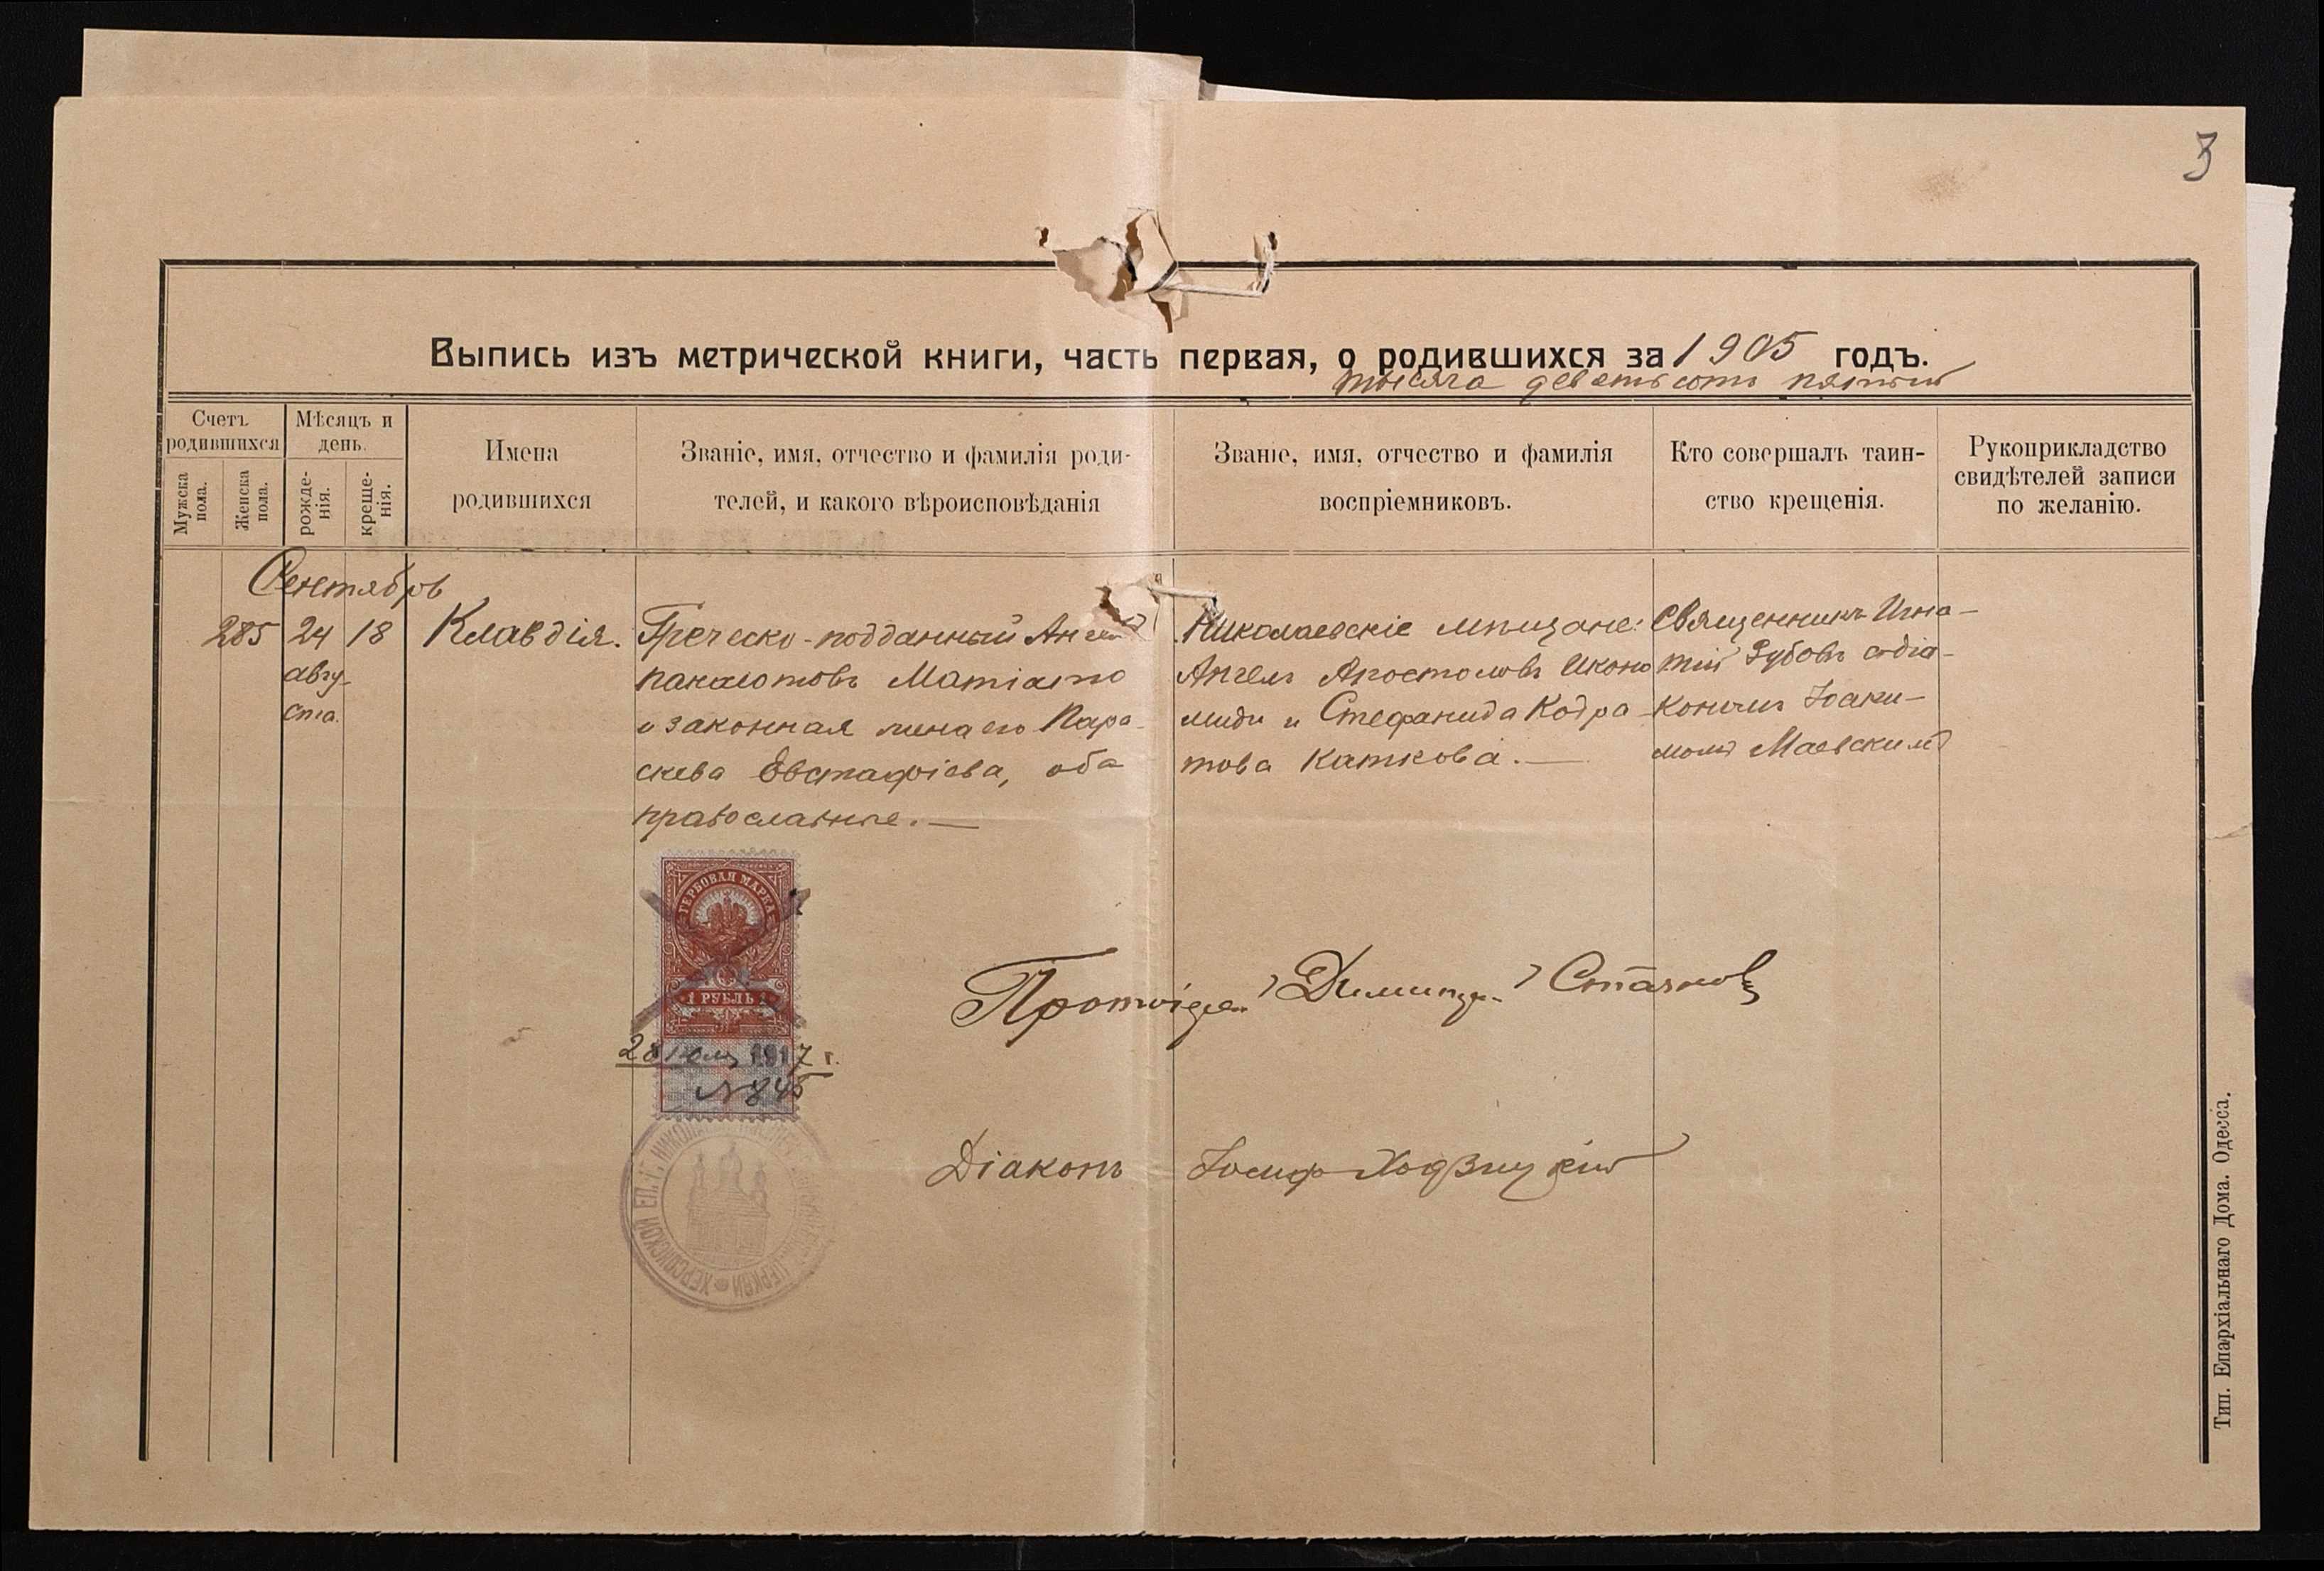 3
Выпись изъ метрической книги, часть первая, о родившихся за 1905 годъ.
тысяча девятьсотъ пятый
Счетъ родившихся
Мужска пола.
Женска пола.
Мѣсяцъ и день.
рожде-
нія.
креще-
нія.
Имена
родившихся
Званіе, имя, отчество и фамилія роди-
телей, и какого вѣроисповѣданія
Званіе, имя, отчество и фамилія
воспріемниковъ.
Кто совершалъ таин-
ство крещенія.
Рукоприкладство
свидѣтелей записи
по желанію.
Сентябрь
285 24 18 Клавдія.
авгу-
ста.
Греческо-подданный
Панаіотовъ Матіато
и законная жена его Пара-
скева Евстафіева, оба
православные.—
Николаевскіе мѣщане:
Ангелъ Апостоловъ Иконо
миди и Стефанида Кодра-
това Каткова.—
Священникъ Игна-
тій Зубовъ съ діа-
кономъ Іоаки-
момъ Маевскимъ
ГЕРБОВАЯ МАРКА
1 РУБЛЬ 1
28 Іюля 1917 г.
№ 845
Протоіерей Димитрій
Діаконъ Іосифъ
ХЕРСОНСКОЙ ЕП. Г. НИКОЛА
ЦЕРКВИ
Тип. Епархіальнаго Дома. Одесса.